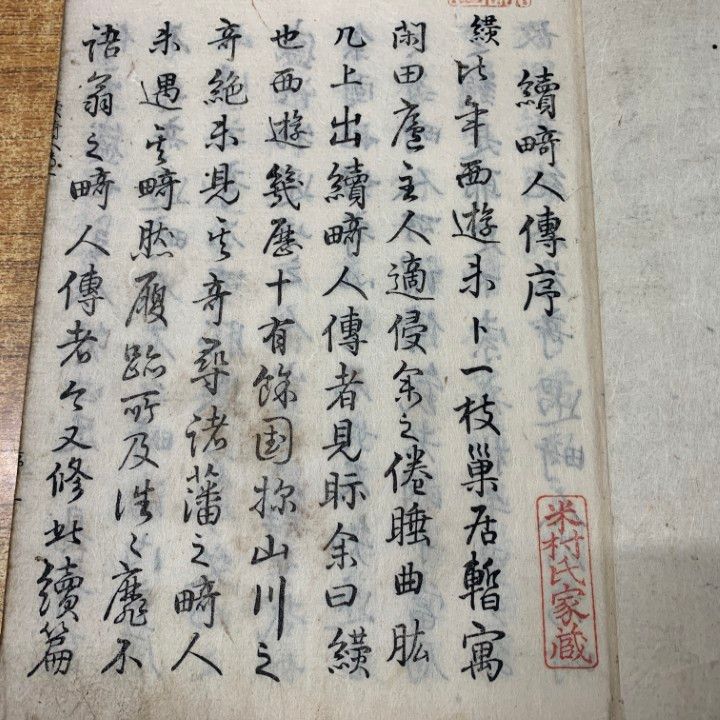 續畸人傳序
緓比年西遊未卜一枝巢居暫寓
閑田廬主人適侵余之倦睡曲肱
几上出續畸人傳者見眎余曰緓
也西遊幾歷十有餘国探山川之
奇絶未見其奇尋諸藩之畸人
未遇其畸然履跡所及往〻靡不
語翁之畸人傳者今又修此續篇
米村氏家蔵